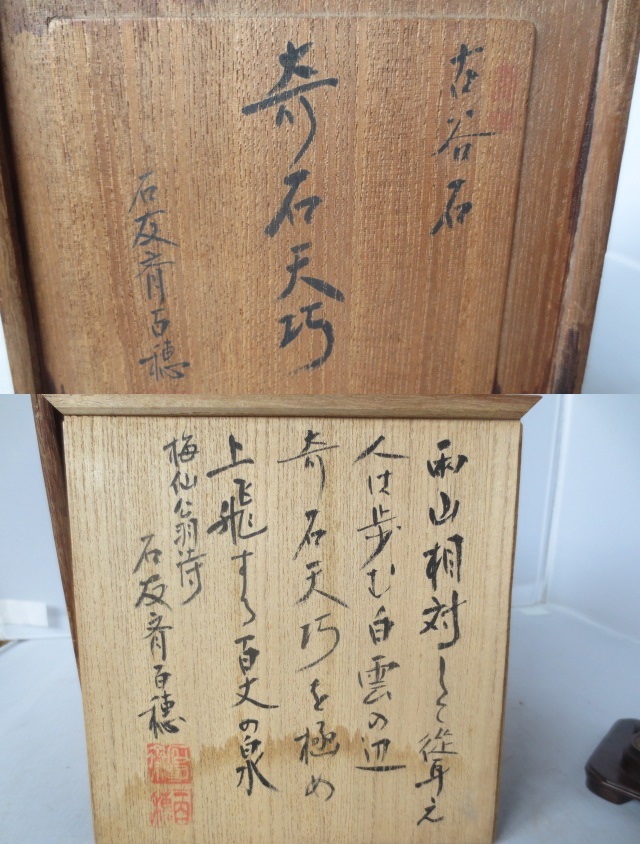 古谷石
奇石天巧
石友斉百穂
両山相対して聳え
人は歩む白雲の辺
奇石天巧を極め
上飛する百丈の泉
梅仙翁詩
石友斉百穂